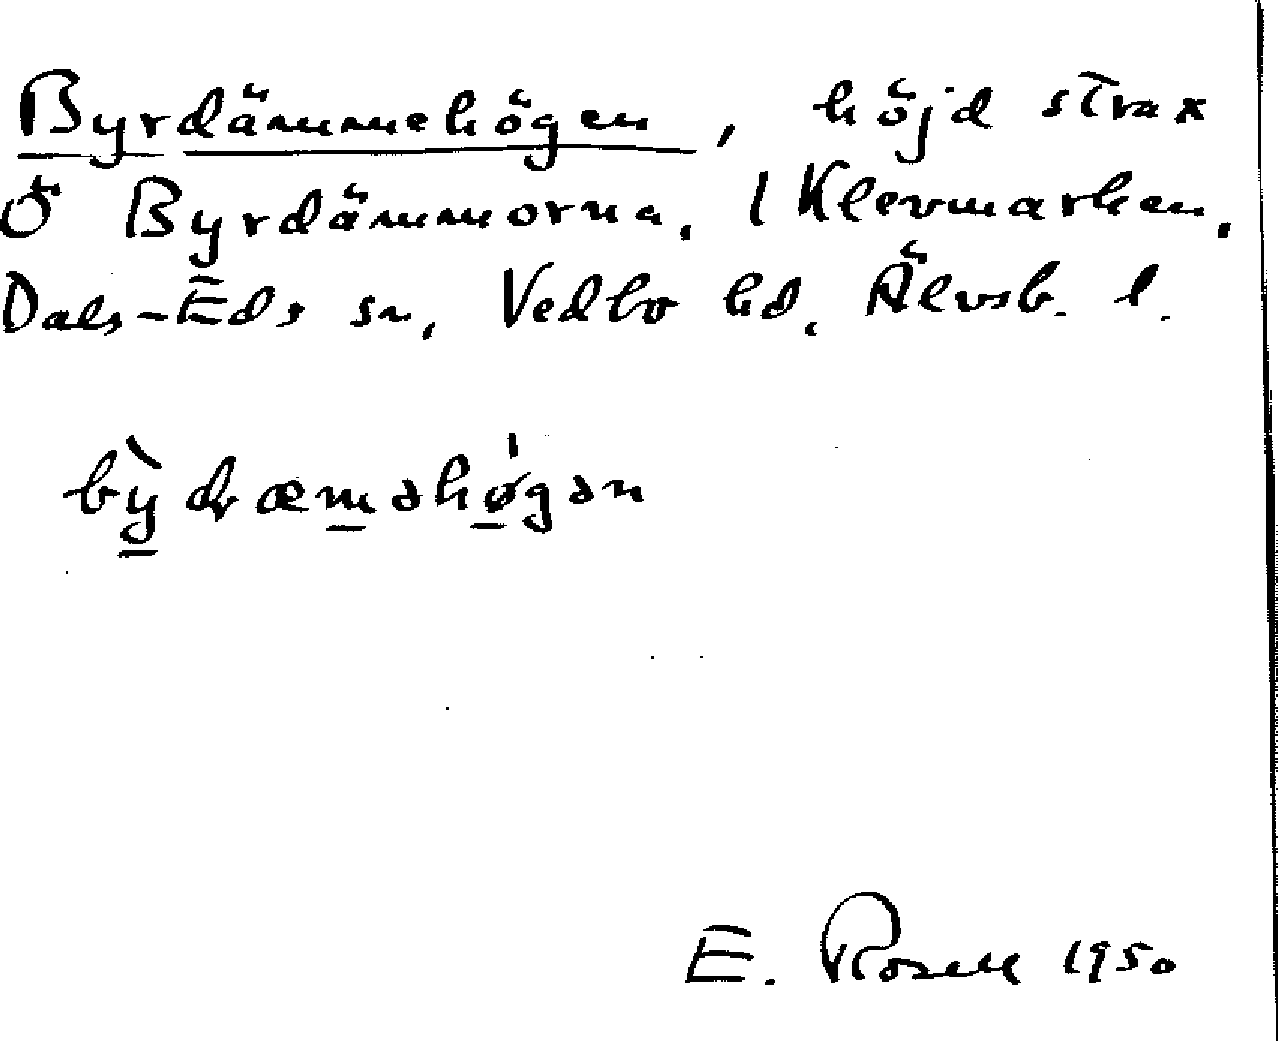 Byrdämmehögen, höjd strax
Ö Byrdämmorna. I Klevmarken.
Dals-Eds sn, Vedbo hd. Älvsb. l.
bỳdræməhø̍gən
E. Rosell 1950